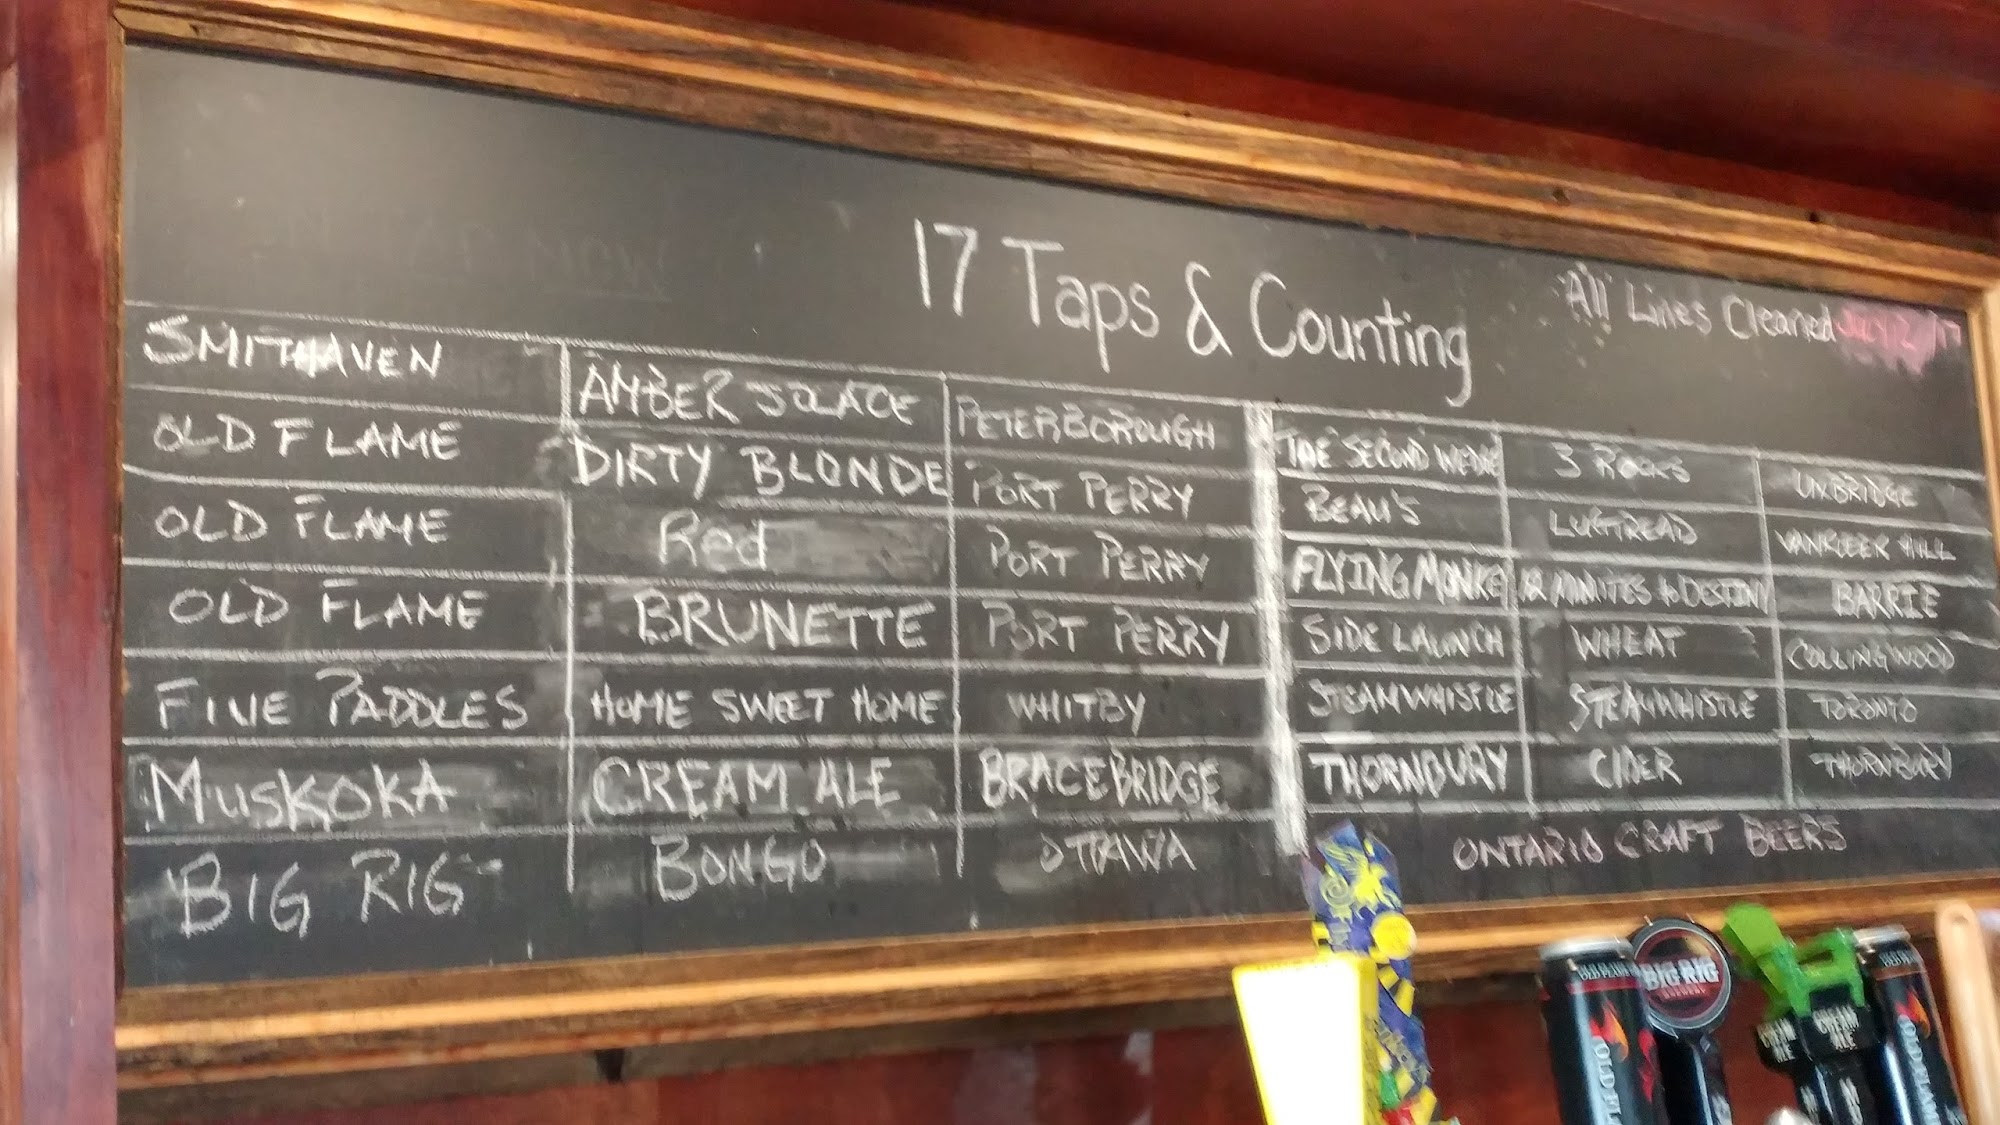 17 Taps & Counting
All Lines Cleaned
SMITHAVEN AMBER SOLACE PETERBOROUGH
OLD FLAME DIRTY BLONDE PORT PERRY
OLD FLAME Red PORT PERRY
OLD FLAME BRUNETTE PORT PERRY
FIVE PADDLES HOME SWEET HOME WHITBY
MUSKOKA CREAM ALE BRACEBRIDGE
BIG RIG BONGO OTTAWA
THE SECOND WEDGE 3 ROCKS UXBRIDGE
BEAU'S LUGTREAD VANKLEEK HILL
FLYING MONKE 12 MINITES to DESTINY BARRIE
SIDE LAUNCH WHEAT COLLINGWOOD
STEAMWHISTLE STEAMWHISTLE TORONTO
THORNBURY CIDER THORNBURY
ONTARIO CRAFT BEERS
BIG RIG
CREAM ALE
CREAM ALE